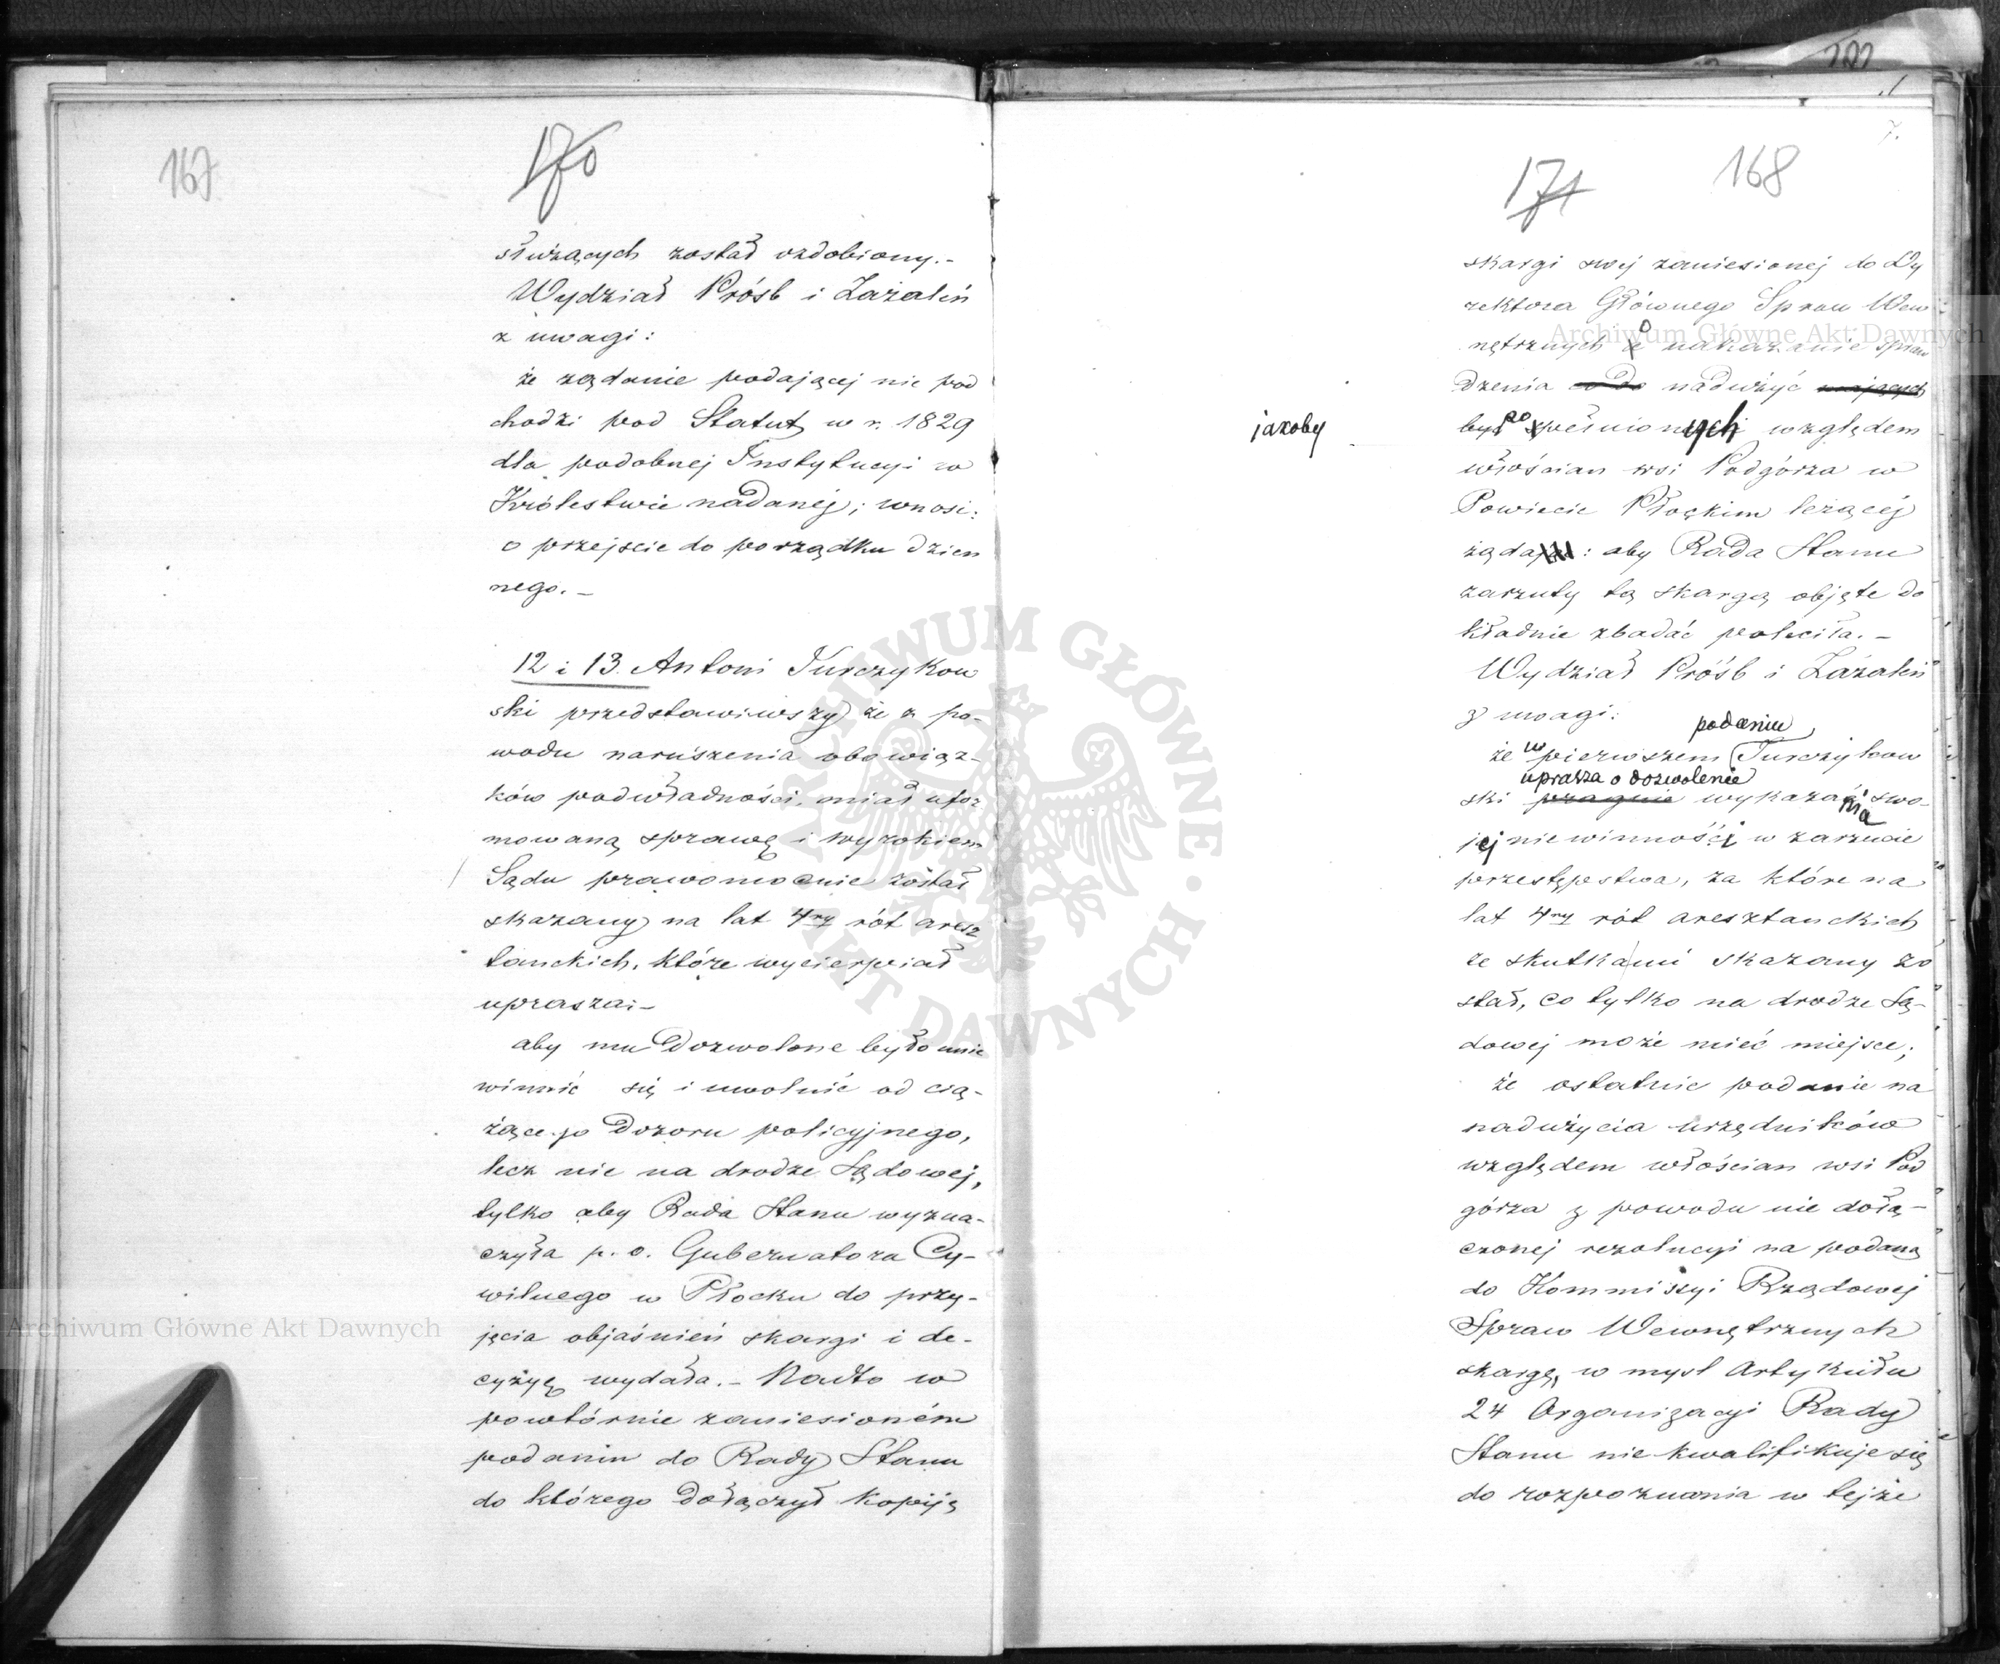 167
170
służących został ozdobiony.-
Wydział Próśb i Zażaleń
z uwagi:
że żądanie podającej nie pod
chodzi pod Statut w r. 1829
dla podobnej Instytucyi w
Królestwie nadanéj; wnosi:
o przejście do porządku dzien
nego.-
12 i 13. Antoni Turczykow
ski przedstawiwszy że z po-
wodu naruszenia obowiąz-
ków podwładności, miał ufor
mowaną sprawę i wyrokiem
Sądu prawomocnie został
skazany na lat 4ry rót aresz
tanckich, które wycierpiał
uprasza:-
aby mu dozwolone było unie
winnić się i uwolnić od cią-
żącego dozoru policyjnego,
lecz nie na drodze Sądowej,
tylko aby Rada Stanu wyzna-
czyła p. o. Gubernatora Cy-
wilnego w Płocku do przy-
jęcia objaśnień skargi i de-
cyzyę wydała.- Nadto w
powtórnie zaniesioném
podaniu do Rady Stanu
do którego dołączył kopiję
171
168
skargi swej zaniesionej do Dy
rektora Głównego Spraw Wew
nętrznych o nakazanie spraw
dzenia nadużyć mających
jakoby
być popełnionych względem
włościan wsi Podgórza w
Powiecie Płockim leżącéj
żąda: aby Rada Stanu
zarzuty tą skargą objęte do
kładnie zbadać poleciła.-
Wydział Próśb i Zażaleń
z uwagi:
podaniu
że w pierwszem Turczykow
uprasza o dozwolenie
ski pragnie wykazania swo-
jej niewinności w zarzucie
przestępstwa, za które na
lat 4ry rót aresztanckich
ze skutkami skazany zo
stał, co tylko na drodze Są-
dowej może mieć miejsce;
że ostatnie podanie na
nadużycia urzędników
względem włościan wsi Pod
górza z powodu nie dołą-
czonej rezolucyi na podaną
do Kommissyi Rządowej
Spraw Wewnętrznych
skargę, w myśl Artykułu
24 Organizacyi Rady
Stanu nie kwalifikuje się
do rozpoznania w tejże
Archiwum Główne Akt Dawnych
Archiwum Główne Akt Dawnych
ARCHIWUM GŁÓWNE AKT DAWNYCH